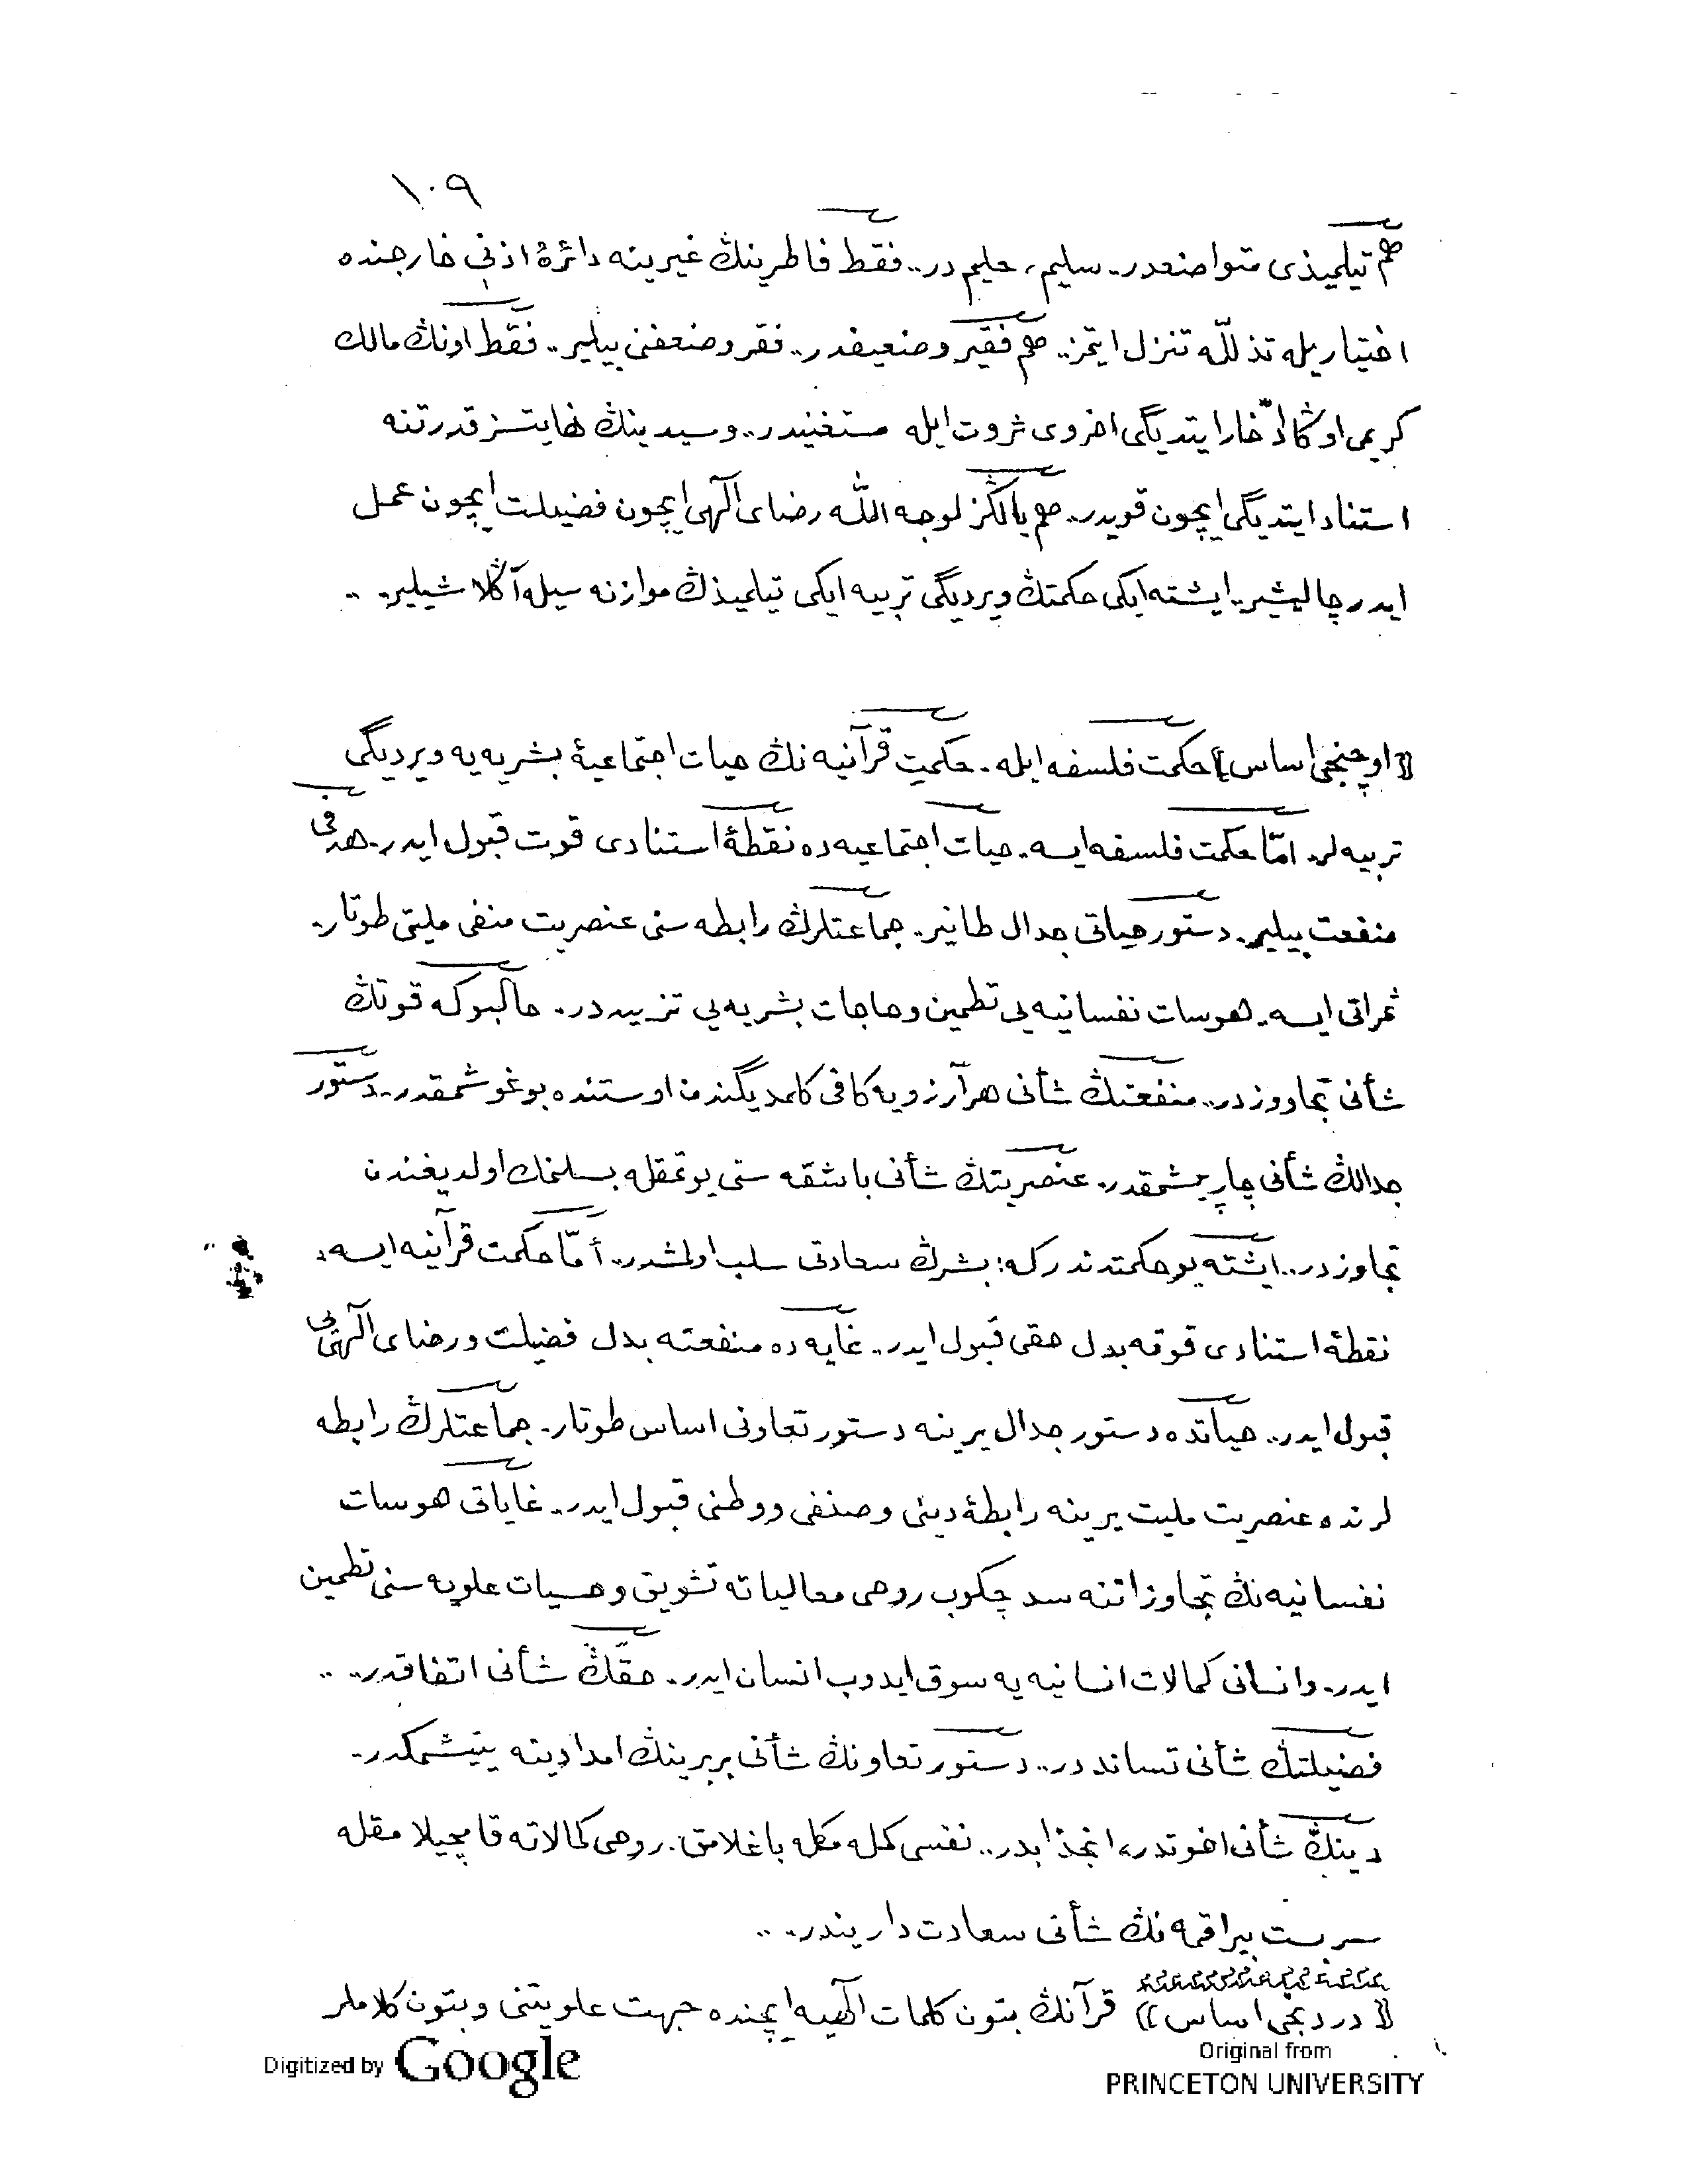 ١٠٩
هم تيلميذى متواضعدر.. سليم، حليم در.. فقط فاطرينڭ غيرينه دائرۀ اذنى خارجنده
اختياريله تذلله تنزل ايتمز.. هم فقير وضعيفدر.. فقر وضعفنى بيلير.. فقط اونڭ مالك
كريمى اوڭا ادّخار ايتديگى اخروى ثروت ايله مستغنيدر.. وسيدينڭ نهايتسز قدرتنه
استناد ايتديگى ايچون قويدر.. هم يالڭز لوجه اللّٰه رضاى الٓهى ايچون فضيلت ايچون عمل
ايدر چاليشير.. ايشته ايكى حكمتڭ ويرديگى تربيه ايكى تيلميذڭ موازنه سيله آڭلاشيلير. ..
((اوچنجى اساس)) حكمت فلسفه ايله. حكمت قرآنيه نڭ حيات اجتماعيۀ بشريه يه ويرديگى
تربيه لر. امّا حكمت فلسفه ايسه. حيات اجتماعيه ده نقطۀ استنادى قوت قبول ايدر. هدفى
منفعت بيلير. دستور حياتى جدال طانير. جماعتلرڭ رابطه سنى عنصريت منفى مليتى طوتار.
ثمراتى ايسه. هوسات نفسانيه يى تطمين وحاجات بشريه يى تزييددر. حالبوكه قوتڭ
شأنى تجاووزدر.. منفعتڭ شأنى هر آرزويه كافى كلمديگندن اوستنده بوغوشمقدر.. دستور
جدالڭ شأنى چارپيشمقدر. عنصريتڭ شأنى باشقه سنى يوتمقله بسلنمك اولديغندن
تجاوزدر.. ايشته بو حكمتدندركه؛ بشرڭ سعادتى سلب اولمشدر.. أمّا حكمت قرآنيه ايسه؛
نقطۀ استنادى قوته بدل حقى قبول ايدر.. غايه ده منفعته بدل فضيلت ورضاى الٓهى يى
قبول ايدر.. حياتده دستور جدال يرينه دستور تعاونى اساس طوتار. جماعتلرڭ رابطه
لرنده عنصريت مليت يرينه رابطۀ دينى وصنفى ووطنى قبول ايدر.. غاياتى هوسات
نفسانيه نڭ تجاوزاتنه سد چكوب روحى معالياته تشويق وحسيات علويه سنى تطمين
ايدر. وانسانى كمالات انسانيه يه سوق ايدوب انسان ايدر. حقّڭ شأنى اتفاقدر.. ..
فضيلتڭ شأنى تسانددر.. دستور تعاونڭ شأنى بربرينڭ امدادينه يتيشمكدر.
دينڭ شأنى اخوتدر، انجذابدر.. نفسى كمله مكله باغلامق. روحى كمالاته قامچيلامقله
سربست بيراقمه نڭ شأنى سعادت داريندر. ..
((دردنجى اساس)) قرآنڭ بتون كلمات الٓهيه ايچنده جهت علويتنى وبتون كلاملر
Digitized by Google
Original from
PRINCETON UNIVERSITY